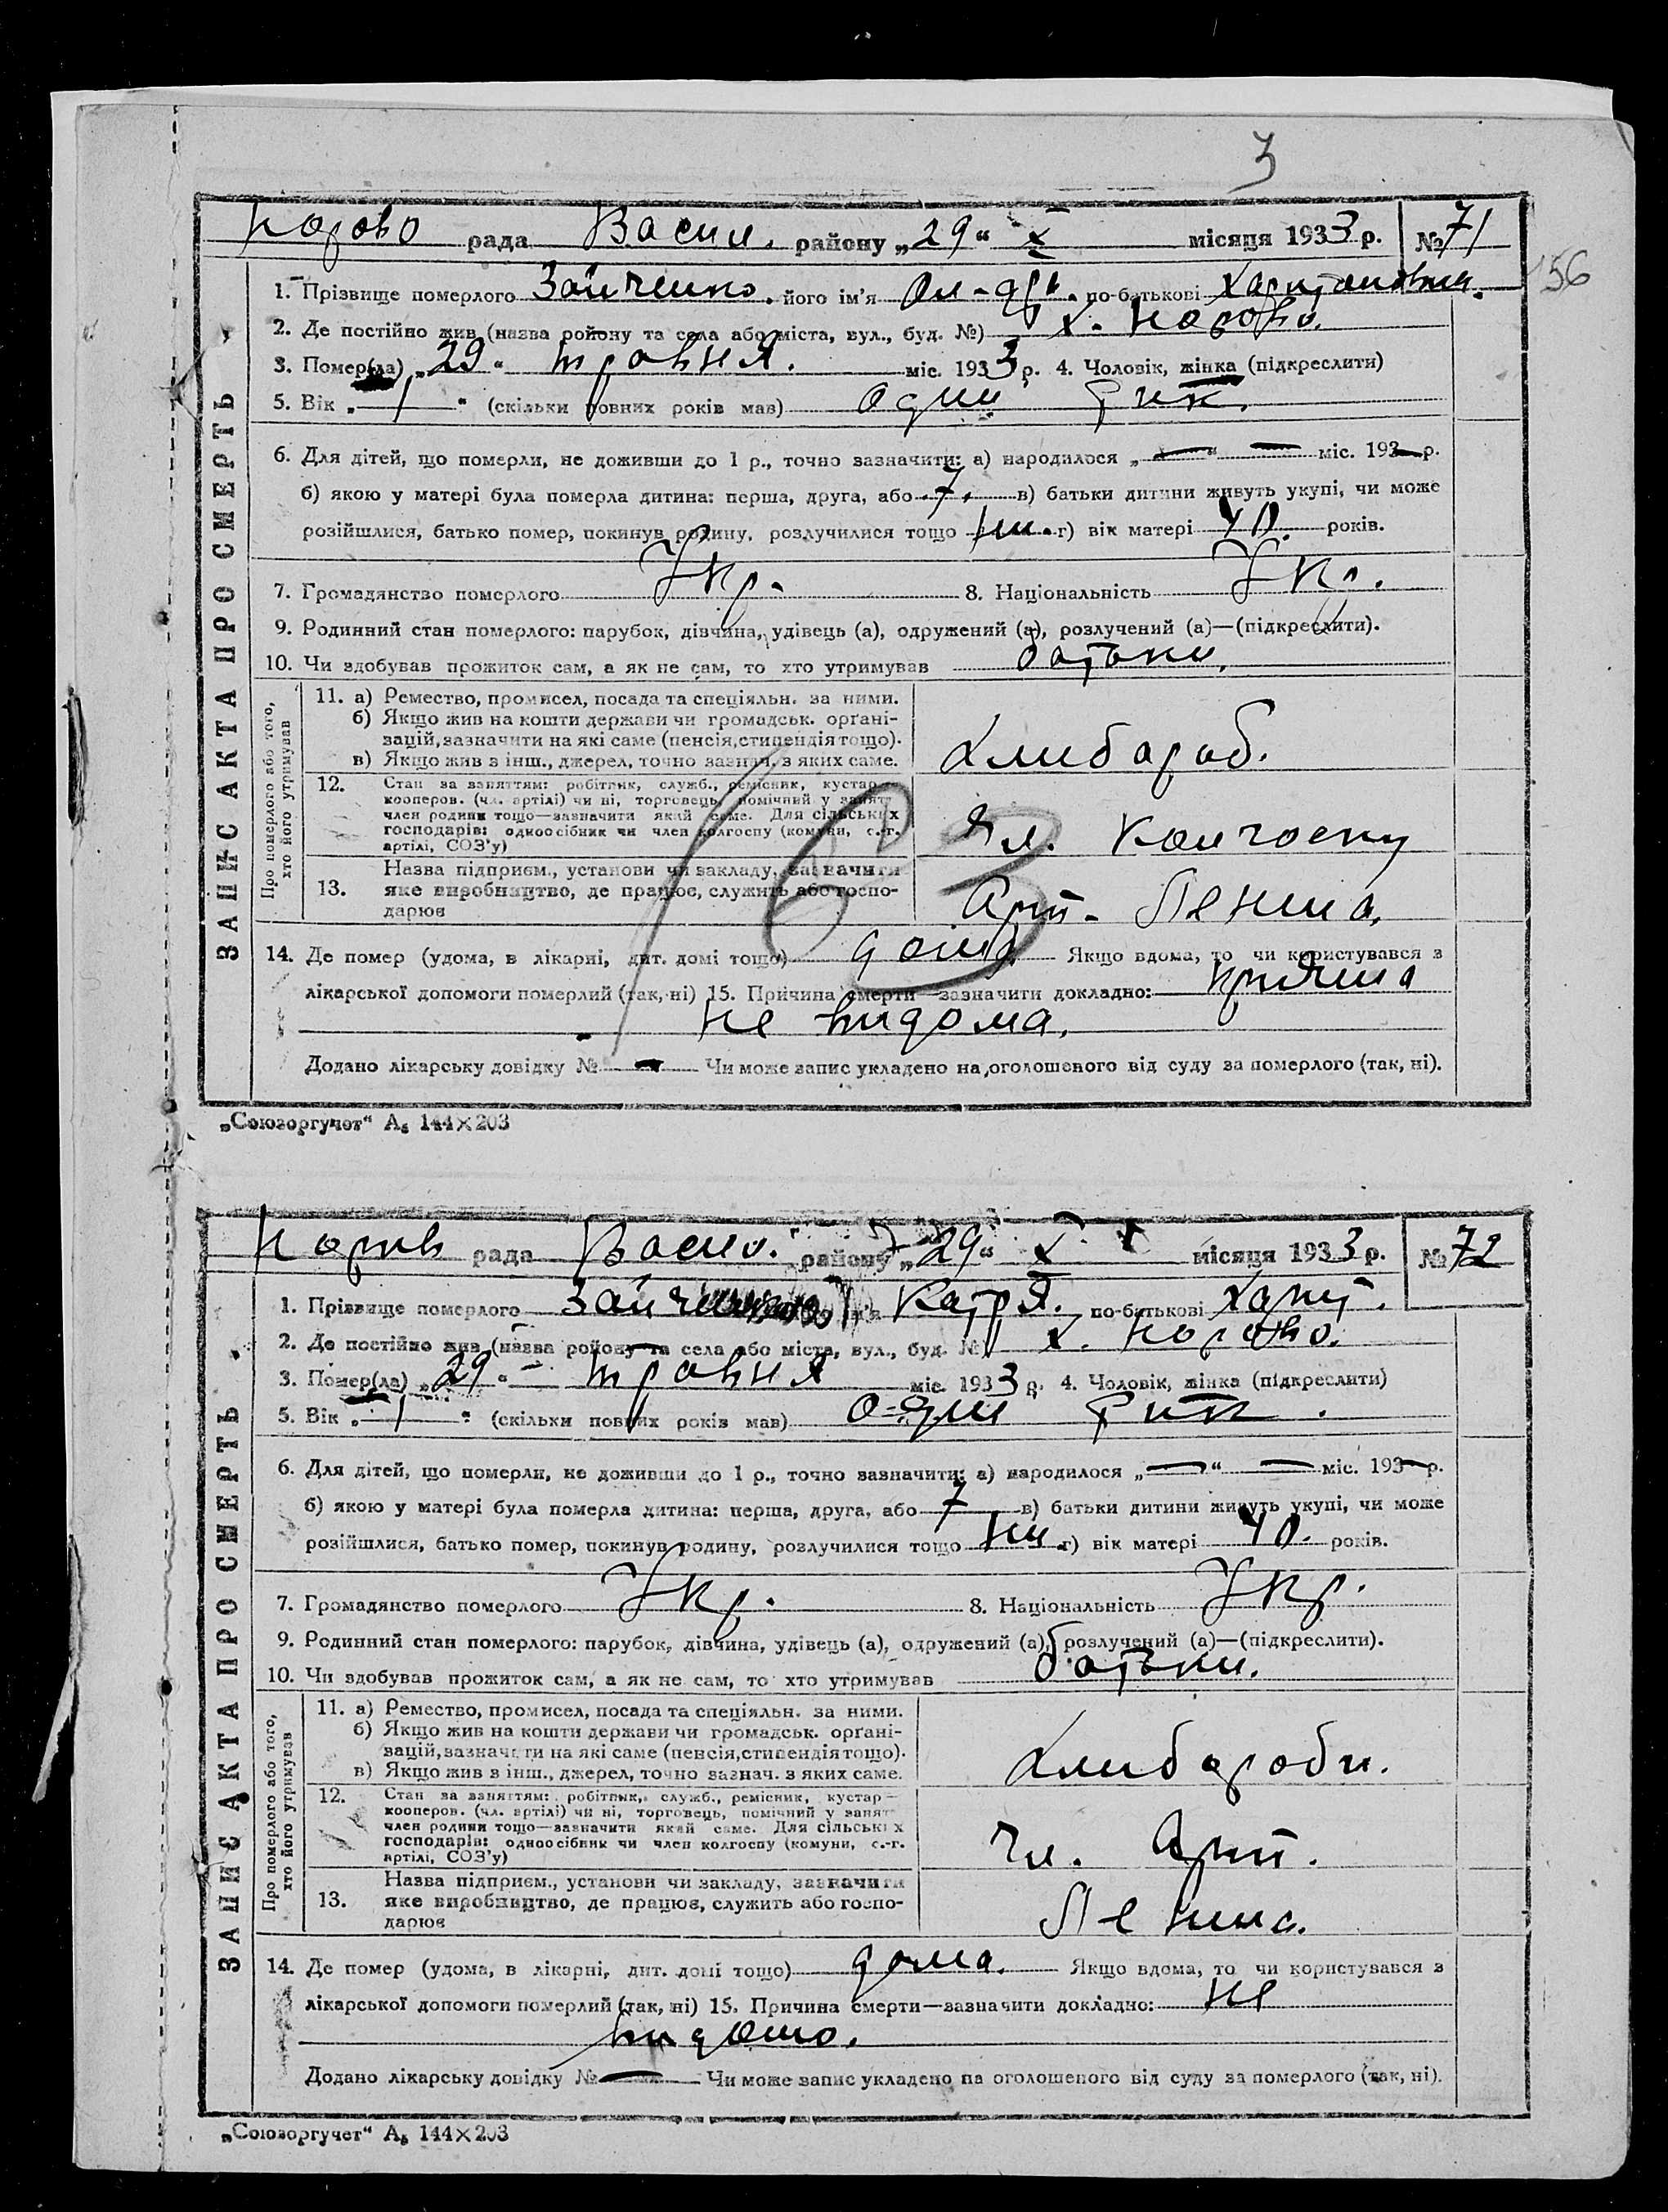 3
рада Васил. району „29“ X місяця 1933 р. № 71
156
1. Прізвище померлого Зайченко. його ім'я Ол-др. по-батькові Харитоновна.
2. Де постійно жив (назва району та села або міста, вул., буд. №) х.
3. Помер(ла) „29“ травня. міс. 1933 р. 4. Чоловік, жінка (підкреслити)
5. Вік „1“ (скільки повних років мав) один рик.
6. Для дітей, що померли, не доживши до 1 р., точно зазначити: а) народилося „—“ — міс. 193— р.
б) якою у матері була померла дитина: перша, друга, або 7. в) батьки дитини живуть укупі, чи може
розійшлися, батько помер, покинув родину, розлучилися тощо г) вік матері 40. років.
7. Громадянство померлого Укр. 8. Національність Укр.
9. Родинний стан померлого: парубок, дівчина, удівець (а), одружений (а), розлучений (а)—(підкреслити).
10. Чи здобував прожиток сам, а як не сам, то хто утримував батьки.
11. а) Ремество, промисел, посада та спеціяльн. за ними.
б) Якщо жив на кошти держави чи громадськ. орґані-
зацій, зазначити на які саме (пенсія, стипендія тощо).
в) Якщо жив з інш., джерел, точно зазнач. з яких саме.
Хлибороб.
12. Стан за заняттям: робітник, служб., ремісник, кустар-
кооперов. (чл. артілі) чи ні, торговець, помічний у занят
член родини тощо—зазначити який саме. Для сільських
господарів: одноосібник чи член колгоспу (комуни, с.-г.
артілі, СОЗ'у)
Чл. Колгоспу
13. Назва підприєм., установи чи закладу, зазначити
яке виробництво, де працює, служить або госпо-
дарює
Арт. Ленина,
Про померлого або того,
хто його утримував
14. Де помер (удома, в лікарні, дит. домі тощо) дома. Якщо вдома, то чи користувався з
лікарської допомоги померлий (так, ні) 15. Причина смерти—зазначити докладно: причина
не видома.
Додано лікарську довідку № — Чи може запис укладено на оголошеного від суду за померлого (так, ні).
ЗАПИС АКТА ПРО СМЕРТЬ
„Союзоргучет“ А₅ 144×203
рада Васил. району „29“ X місяця 1933 р. № 72
1. Прізвище померлого Катря. по-батькові Харит.
2. Де постійно жив (назва району та села або міста, вул., буд. №) х.
3. Помер(ла) „29“ травня міс. 1933 р. 4. Чоловік, жінка (підкреслити)
5. Вік „1“ (скільки повних років мав) один рик.
6. Для дітей, що померли, не доживши до 1 р., точно зазначити: а) народилося „—“ — міс. 193— р.
б) якою у матері була померла дитина: перша, друга, або 7 в) батьки дитини живуть укупі, чи може
розійшлися, батько помер, покинув родину, розлучилися тощо г) вік матері 40. років.
7. Громадянство померлого Укр. 8. Національність Укр.
9. Родинний стан померлого: парубок, дівчина, удівець (а), одружений (а), розлучений (а)—(підкреслити).
10. Чи здобував прожиток сам, а як не сам, то хто утримував батьки.
11. а) Ремество, промисел, посада та спеціяльн. за ними.
б) Якщо жив на кошти держави чи громадськ. орґані-
зацій, зазначити на які саме (пенсія, стипендія тощо).
в) Якщо жив з інш., джерел, точно зазнач. з яких саме.
Хлибороби.
12. Стан за заняттям: робітник, служб., ремісник, кустар—
кооперов. (чл. артілі) чи ні, торговець, помічний у занят
член родини тощо—зазначити який саме. Для сільських
господарів: одноосібник чи член колгоспу (комуни, с.-г.
артілі, СОЗ'у)
Чл. Арт.
13. Назва підприєм., установи чи закладу, зазначити
яке виробництво, де працює, служить або госпо-
дарює
Ленина.
Про померлого або того,
хто його утримував
14. Де помер (удома, в лікарні, дит. домі тощо) дома. Якщо вдома, то чи користувався з
лікарської допомоги померлий (так, ні) 15. Причина смерти—зазначити докладно: не
видомо.
Додано лікарську довідку № — Чи може запис укладено на оголошеного від суду за померлого (так, ні).
ЗАПИС АКТА ПРО СМЕРТЬ
„Союзоргучет“ А₅ 144×203